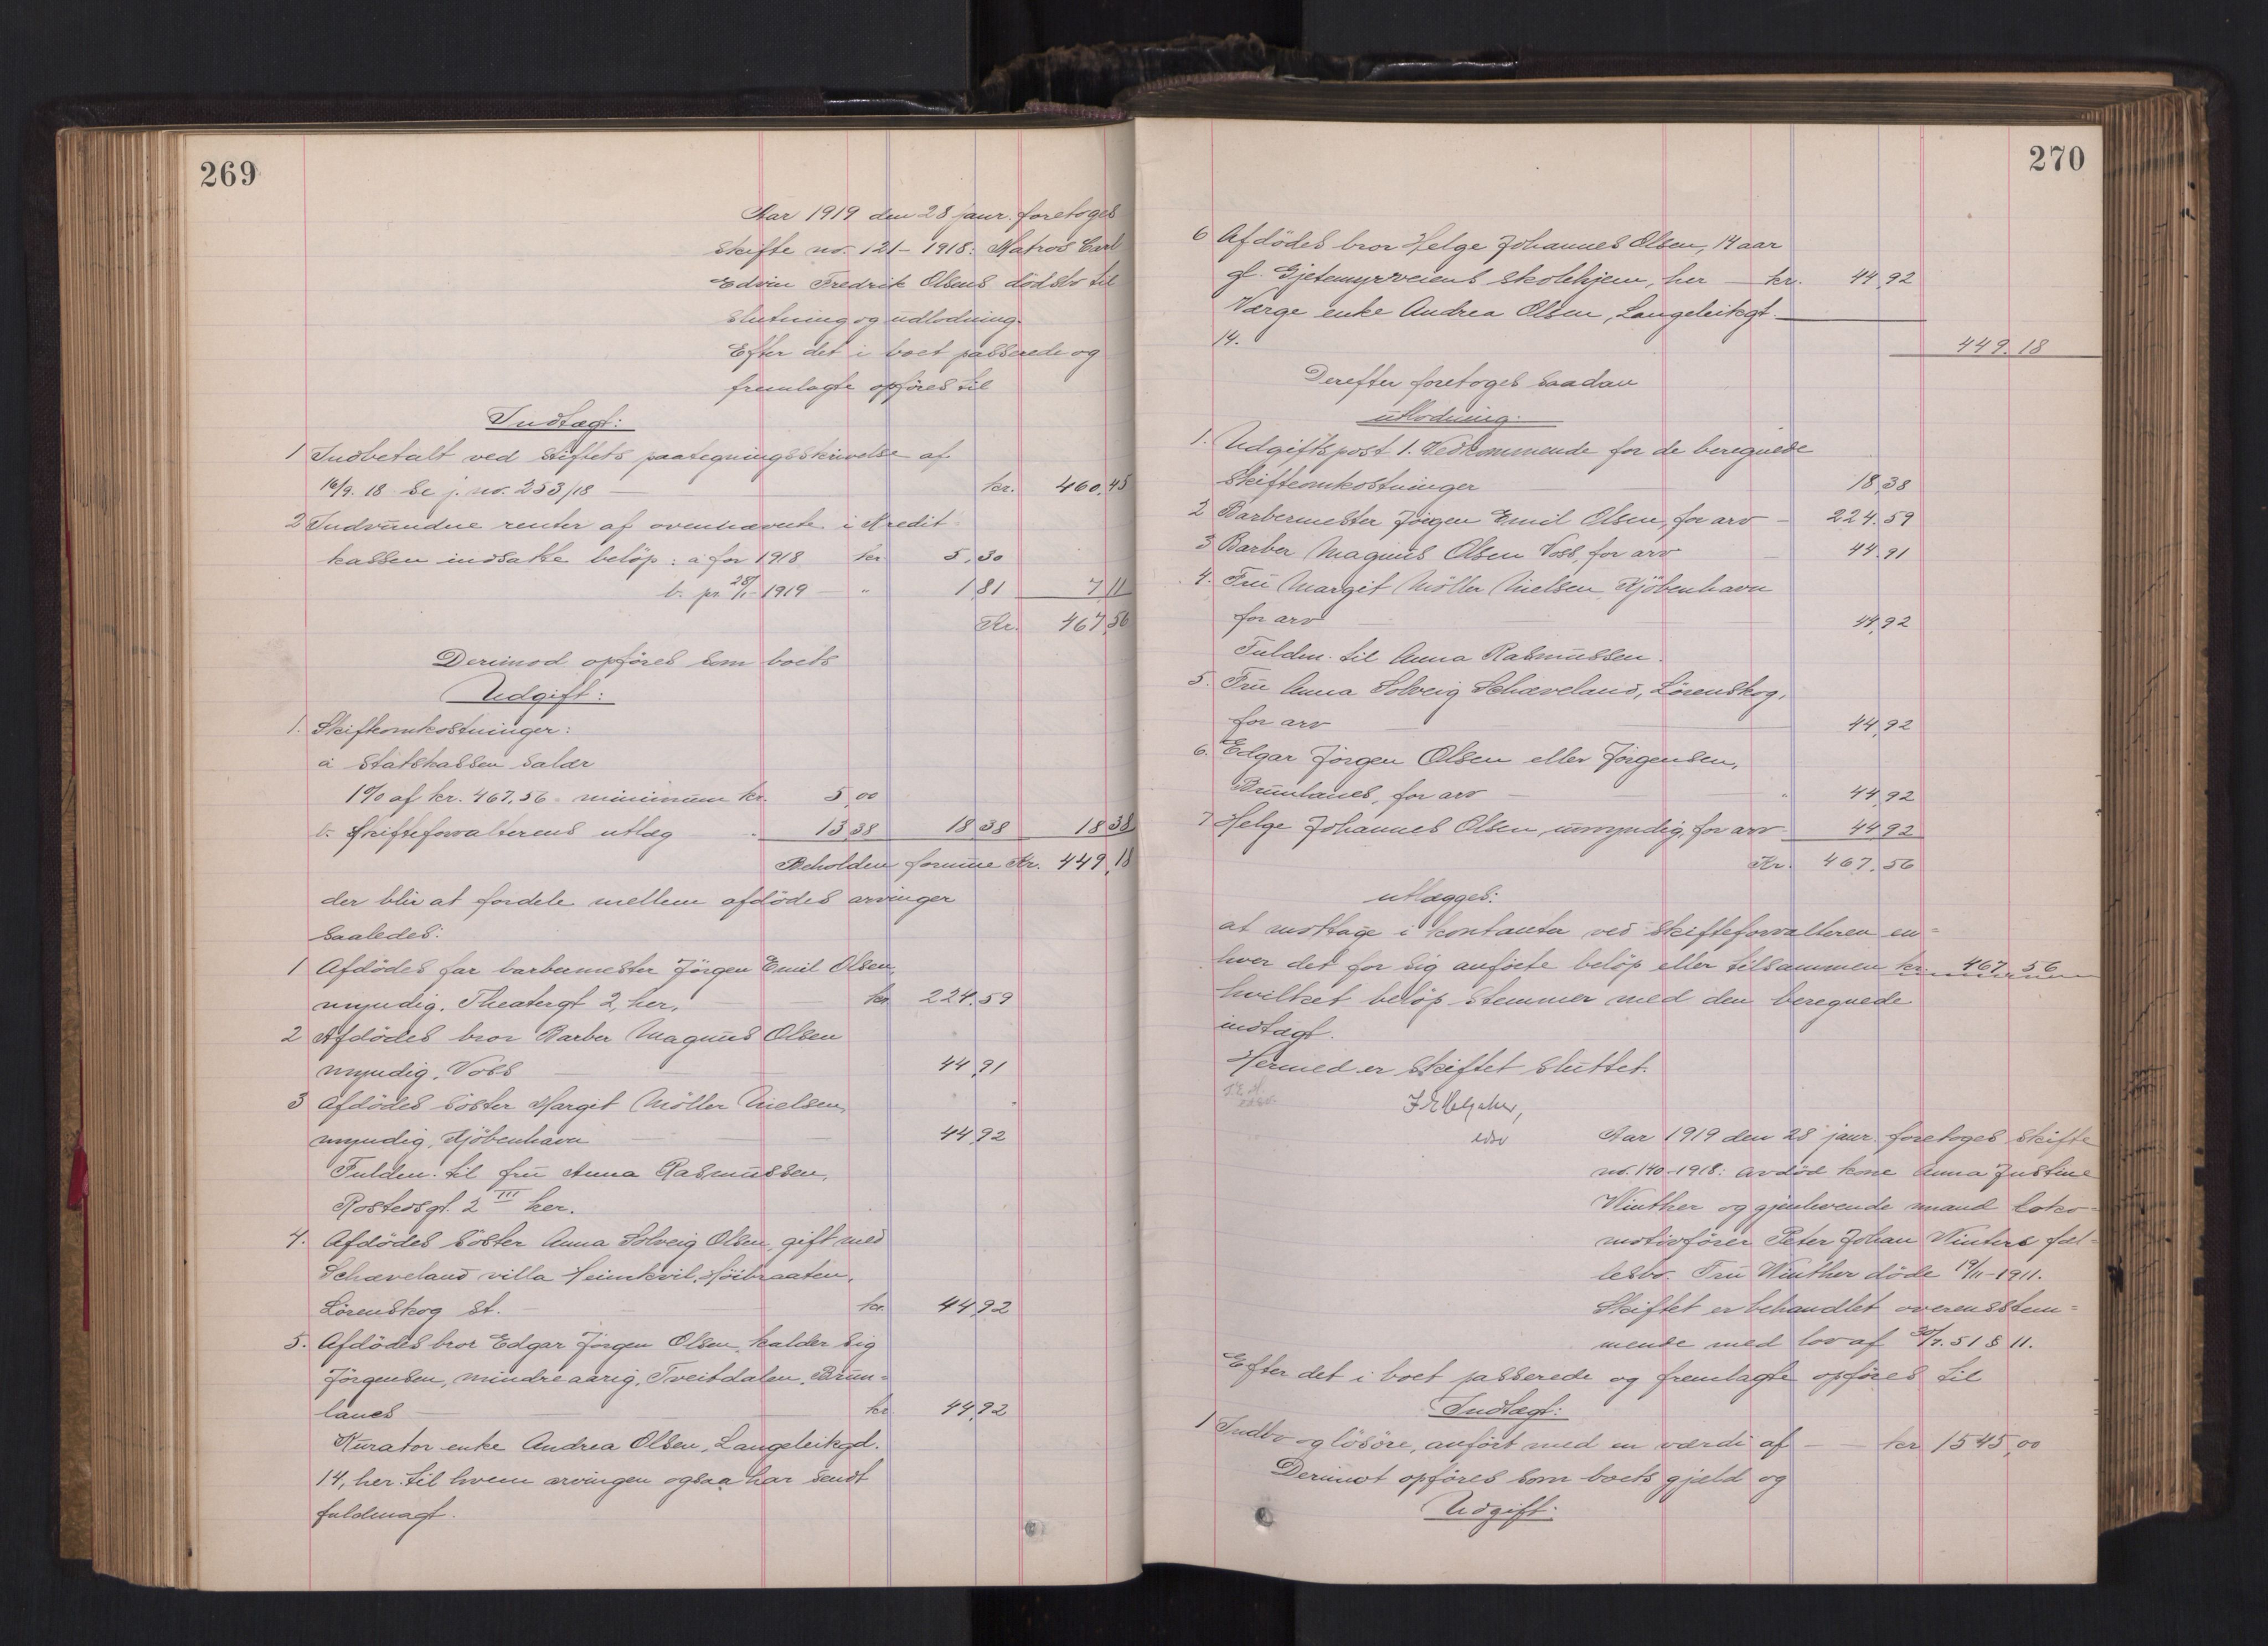 269
Aar 1919 den 28 janr. foretoges
skifte no. 121 - 1918: Matros Carl
Edvin Fredrik Olsens dödsbo til
slutning og udlodning.
Efter det i boet passerede og
fremlagte opföres til
Indtægt:
1 Indbetalt ved skiftets paategningsskrivelse af
16/9. 18 se j. no. 253/18 — kr. 460,45
2 Indvundne renter af ovennævnte i Kredit-
kassen indsatte belöp: a for 1918 kr. 5,30
b. pr. 28/1 - 1919 — " 1,81 7,11
Kr. 467,56
Derimod opföres som boets
Udgift:
1. Skifteomkostninger:
a statskassen salær
1% af kr. 467,56 - minimum kr. 5,00
b. skifteforvalterens utlæg 13,38 18,38 18,38
Beholden formue Kr. 449,18
der blir at fordele mellem afdödes arvinger
saaledes:
1 Afdödes far barbermester Jörgen Emil Olsen,
myndig. Theatergt 2, her, kr. 224.59
2 Afdödes bror Barber Magnus Olsen
myndig, Voss — 44,91
3 Afdödes söster Margit Möller Nielsen,
myndig, Kjöbenhavn — 44,92
Fuldm. til fru Anna Rasmussen,
Rostedsgt. 2 III her.
4. Afdödes söster Anna Solveig Olsen, gift med
Schæveland villa Heimkvil, Höibraaten,
Lörenskog st. — kr. 44,92
5. Afdödes bror Edgar Jörgen Olsen, kalder sig
Jörgensen, mindreaarig, Tveitdalen, Brun-
lanes — kr. 44,92
Kurator enke Andrea Olsen, Langeleikgd.
14, her. til hvem arvingen ogsaa har sendt
fuldmagt.
270
6 Afdödes bror Helge Johannes Olsen, 14 aar
gl. Gjetemyrveiens skolehjem, her — kr. 44,92
Værge enke Andrea Olsen, Langeleikgt.
14. 449.18
Derefter foretoges saadan
utlodning.
1. Udgiftspost 1. Vedkommende for de beregnede
Skifteomkostninger 18,38
2 Barbermester Jörgen Emil Olsen, for arv - 224.59
3 Barber Magnus Olsen Voss, for arv 44.91
4. Fru Margit Möller Nielsen, Kjöbenhavn
for arv — 44,92
Fuldm. til Anna Rasmussen.
5. Fru Anna Solveig Schæveland, Lörenskog,
for arv — 44,92
6. Edgar Jörgen Olsen eller Jörgensen,
Brunlanes, for arv — " 44,92
7 Helge Johannes Olsen, umyndig, for arv 44,92
Kr. 467.56
utlægges:
at mottage i kontanter ved skifteforvalteren en-
hver det for sig anförte belöp eller tilsammen kr. 467,56
hvilket belöp stemmer med den beregnede
indtægt.
Hermed er skiftet sluttet.
edsv
Aar 1919 den 28 janr. foretoges skifte
no. 140 - 1918: avdöd kone Anna Justine
Winther og gjenlevende mand loko-
motivförer Peter Johan Winters fæl-
lesbo. Fru Winther döde 19/11 - 1911.
Skiftet er behandlet overensstem-
mende med lov af 30/7. 51 § 11.
Efter det i boet passerede og fremlagte opföres til
Indtægt:
1 Indbo og lösöre, anfört med en værdi af — kr. 1545,00
Derimot opföres som boets gjæld og
Udgift: